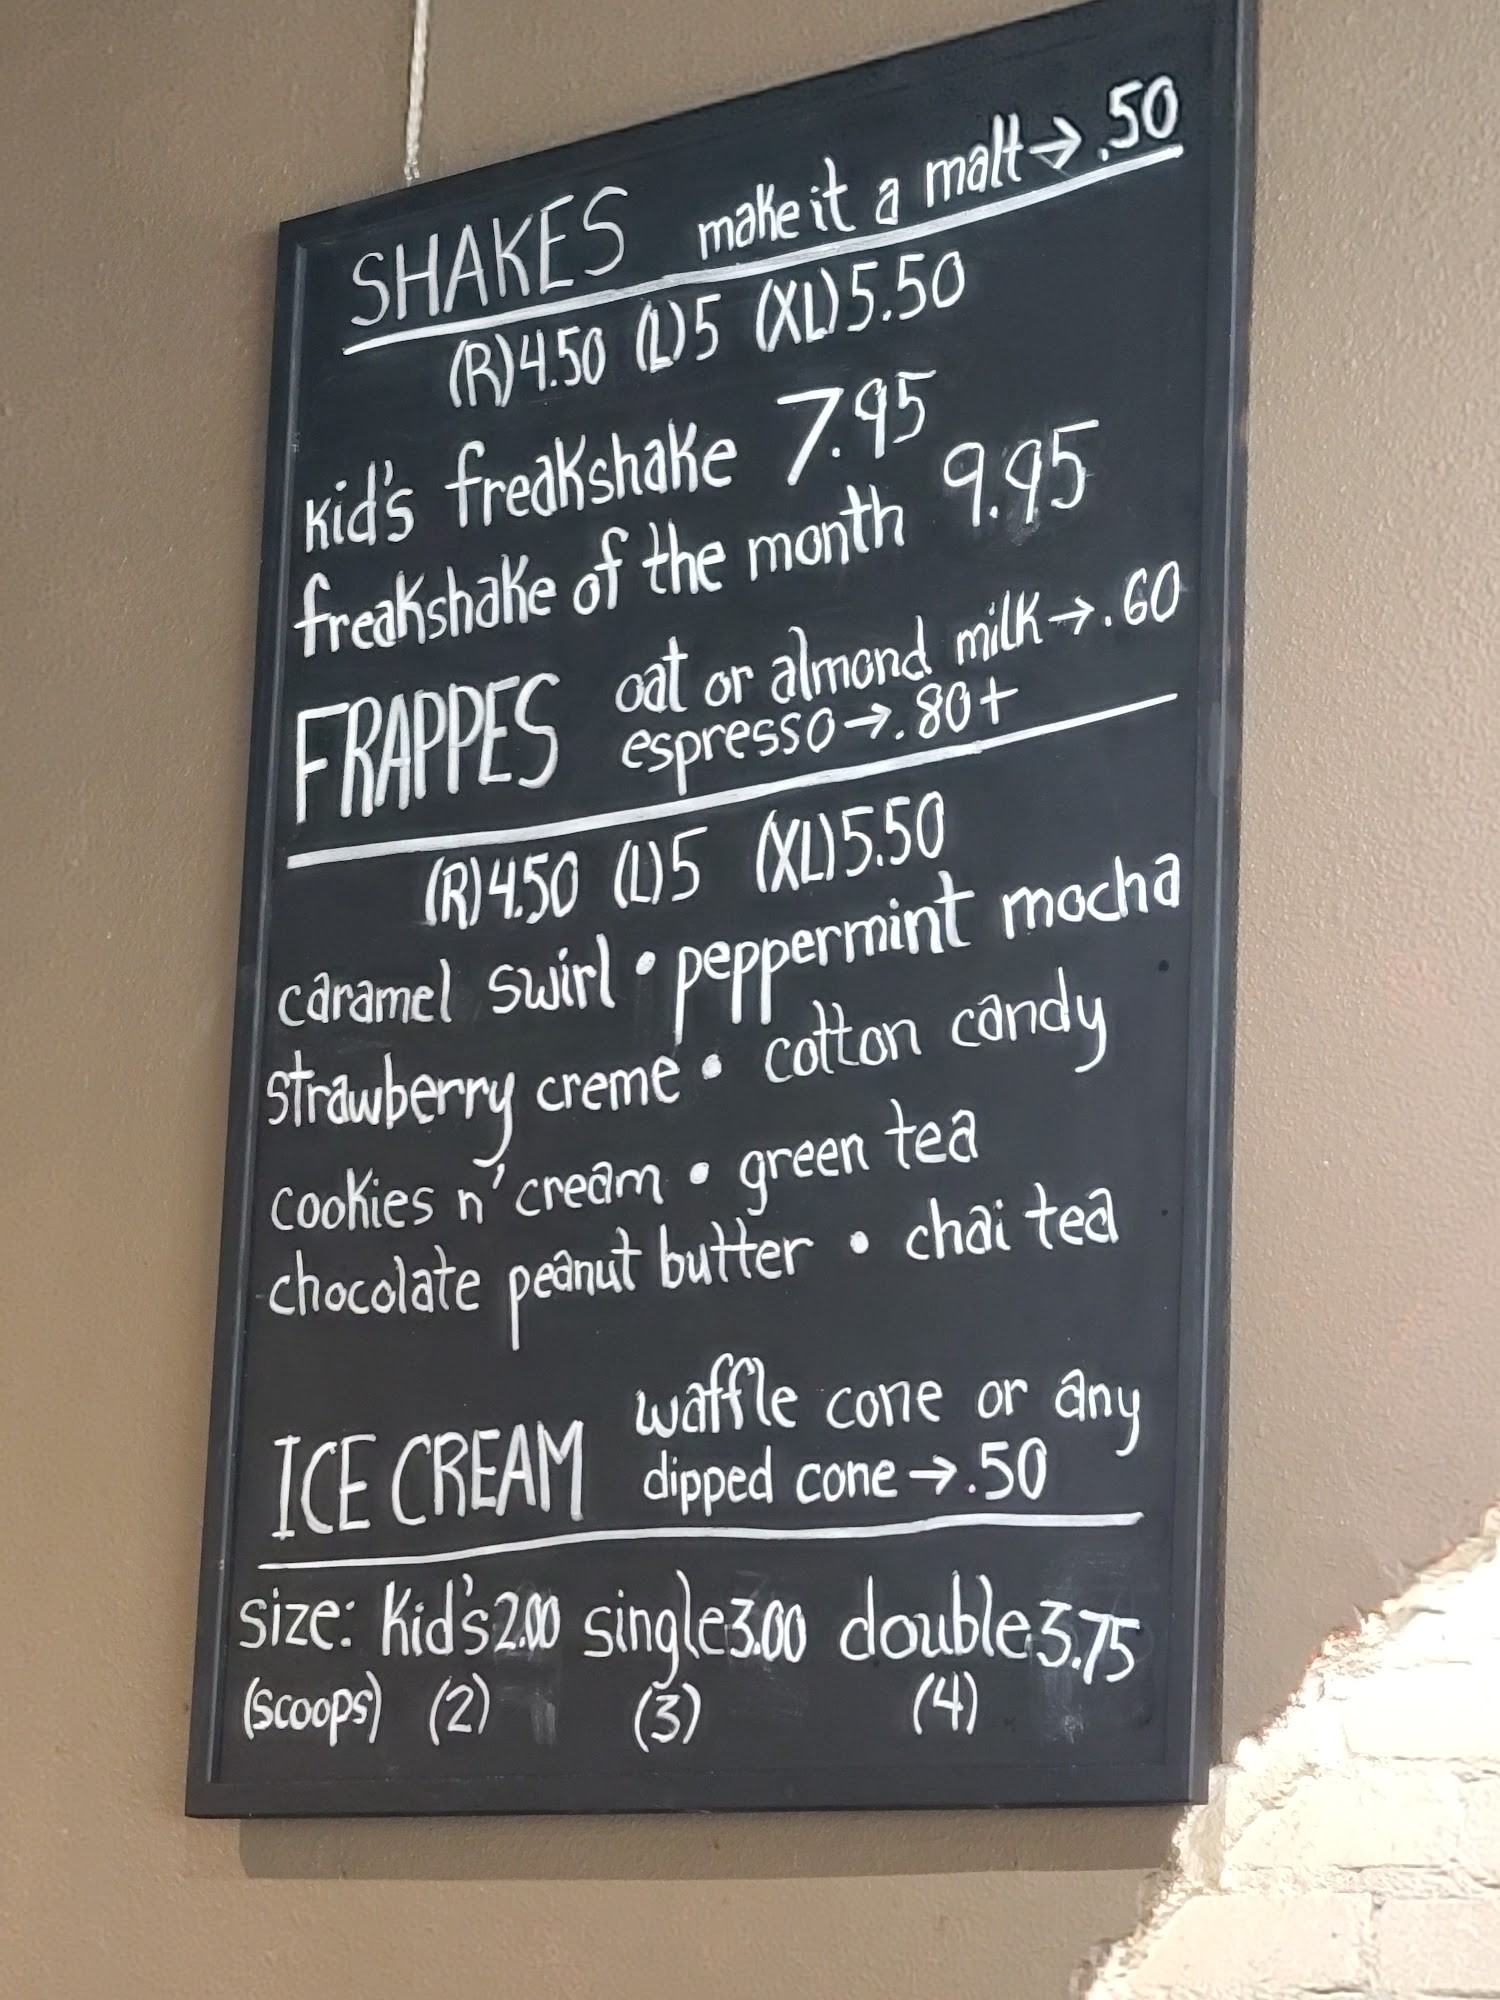 SHAKES make it a malt→.50
(R)4.50 (L)5 (XL)5.50
kid's freakshake 7.95
freakshake of the month 9.95
FRAPPES oat or almond milk→.60
espresso→.80+
(R)4.50 (L)5 (XL)5.50
caramel swirl • peppermint mocha
strawberry creme • cotton candy
cookies n' cream • green tea
chocolate peanut butter • chai tea
ICE CREAM waffle cone or any
dipped cone→.50
size: kid's 2.00 single 3.00 double 3.75
(scoops) (2) (3) (4)